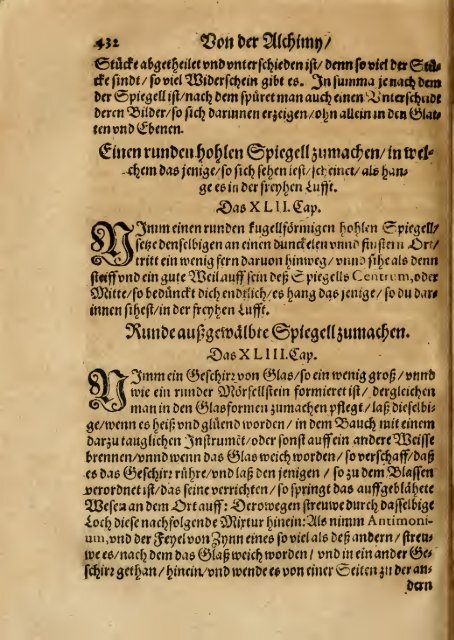 432 Von der Alchimy/
Stücke abgetheilet vnd vnterschieden ist/ denn so viel der Stü-
cke sindt/ so viel Widerschein gibt es. In summa je nach dem
der Spiegell ist/ nach dem spüret man auch einen Vnterscheidt
deren Bilder/ so sich darinnen erzeigen/ ohn allein in den Glat-
ten vnd Ebenen.
Einen runden hohlen Spiegell zumachen/ in wel-
chem das jenige/ so sich sehen lest/ scheinet/ als han-
ge es in der freyhen Lufft.
Das XLII. Cap.
NImm einen runden kugellförmigen hohlen Spiegell/
setze denselbigen an einen dunckelen vnnd finstern Ort/
tritt ein wenig fern daruon hinweg/ vnnd sihe als denn
steiff vnd ein gute Weil auff sein deß Spiegells Centrum, oder
Mitte/ so bedünckt dich endtlich/ es hang das jenige/ so du dar-
innen sihest/ in der freyhen Lufft.
Runde außgewälbte Spiegell zumachen.
Das XLIII. Cap.
NImm ein Geschirr von Glas/ so ein wenig groß/ vnnd
wie ein runder Mörsellstein formieret ist/ dergleichen
man in den Glasformen zumachen pflegt/ laß dieselbi-
ge/ wenn es heiß vnd glüend worden/ in dem Bauch mit einem
darzu tauglichen Instrumēt/ oder sonst auff ein andere Weisse
brennen/ vnnd wenn das Glas weich worden/ so verschaff/ daß
es das Geschirr rühre/ vnd laß den jenigen/ so zu dem Blassen
verordnet ist/ das seine verrichten/ so springt das auffgeblähete
Wesen an dem Ort auff: Derowegen strewe durch dasselbige
Loch diese nachfolgende Mixtur hinein: Als nimm Antimoni-
um, vnd der Feyel von Zynn eines so viel als deß andern/ strew-
we es/ nach dem das Glaß weich worden/ vnd in ein ander Ge-
schirr gethan/ hinein/ vnd wende es von einer Seiten zu der an-
dern